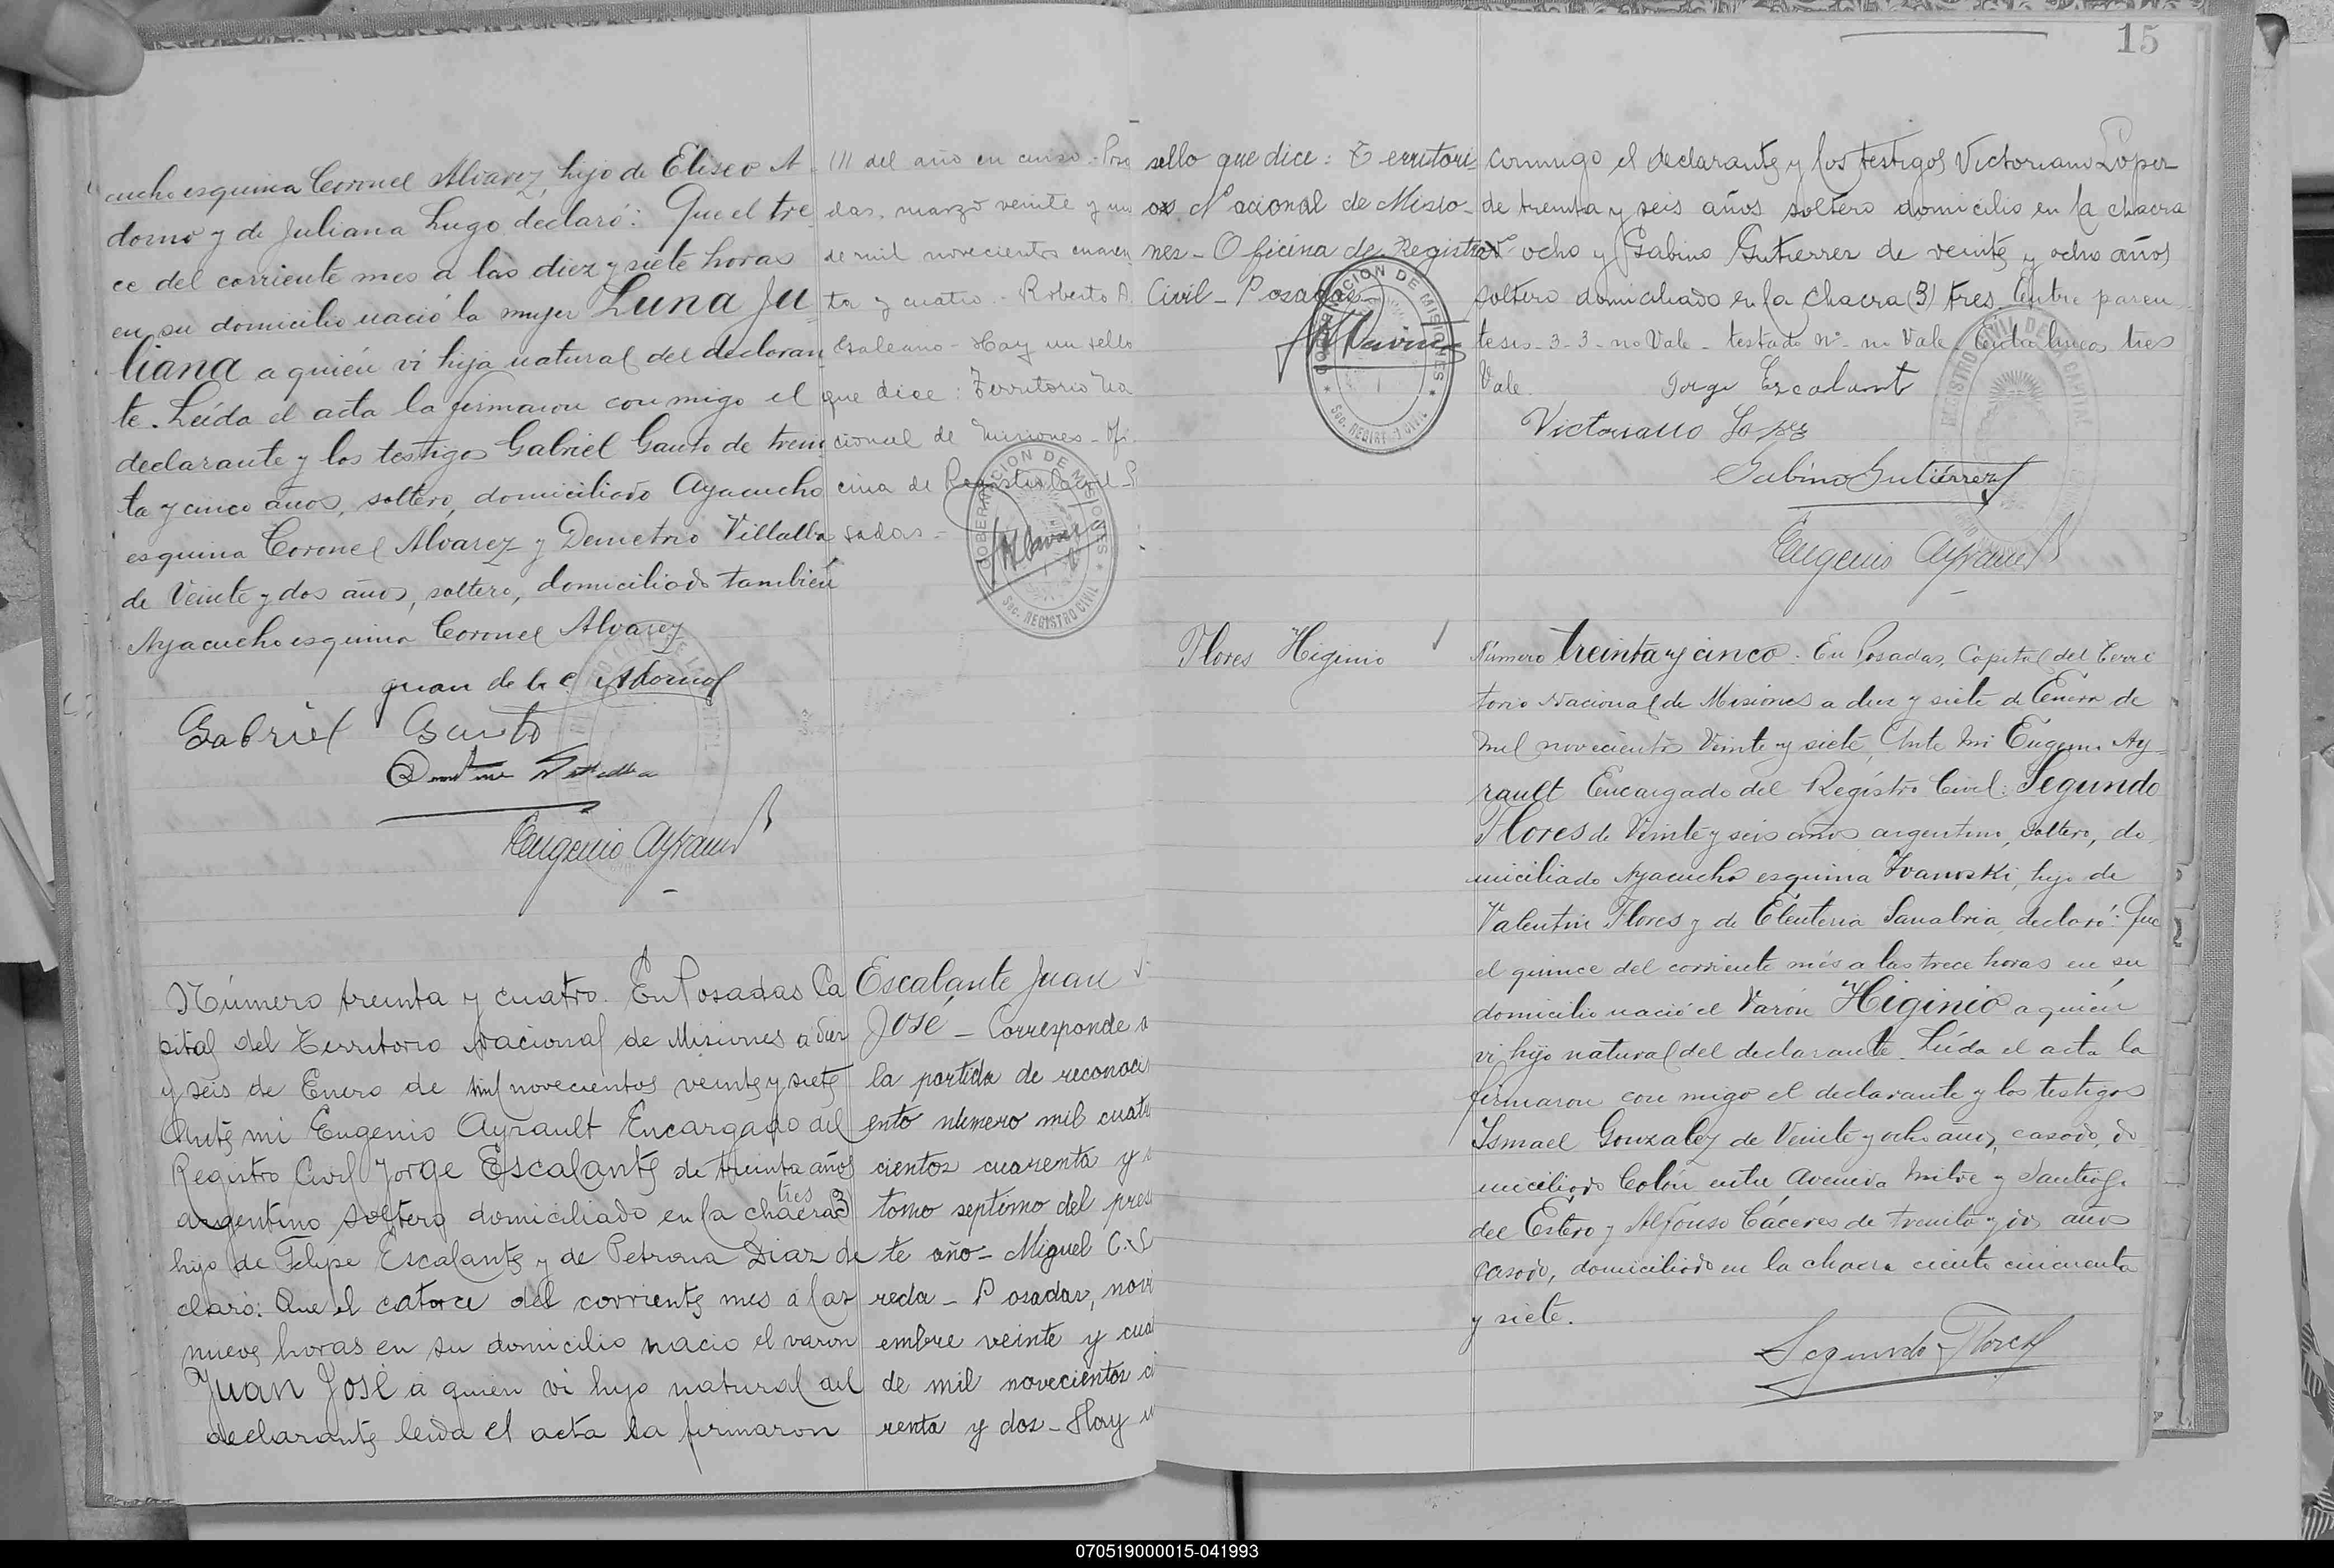 cucho esquina Coronel Alvarez, hijo de Eliseo A
dorno y de Juliana Lugo declaró: Que el tre
ce del corriente mes a las diez y siete horas
en su domicilio nació la mujer Luna Ju
liana a quién vi hija natural del declaran
te. Leída el acta la firmaron conmigo el
declarante y los testigos Gabriel Gauto de trein
ta y cinco años, soltero, domiciliado Ayacucho
esquina Coronel Alvarez y Demetrio Villalba
de Veinte y dos años, soltero, domiciliado también
Ayacucho esquina Coronel Alvarez
Juan de la C. Adorno
Gabriel Gauto
Eugenio Ayrault
III del año en curso. Posa
das, marzo veinte y un
de mil novecientos cuaren
ta y cuatro. - Roberto A.
Galeano - Hay un sello
que dice: Territorio Na
cional de Misiones - Ofi
cina de Registro Civil - P
sadas -
GOBERNACION DE MISIONES
Sec. REGISTRO CIVIL
Número treinta y cuatro. En Posadas Ca
pital del Territorio Nacional de Misiones a diez
y seis de Enero de mil novecientos veinte y siete
Ante mi Eugenio Ayrault Encargado del
Registro Civil Jorge Escalante de treinta años
tres
argentino soltero domiciliado en la chacra 3
hijo de Felipe Escalante y de Petrona Diaz de
claró: Que el catorce del corriente mes a las
nueve horas en su domicilio nacio el varon
Juan José a quien vi hijo natural del
declarante leida el acta la firmaron
Escalante Juan
José - Corresponde a
la partida de reconoci
ento número mil cuatro
cientos cuarenta y
tomo septimo del pres
te año - Miguel C. S
reda - Posadas, novi
embre veinte y cua
de mil novecientos c
renta y dos - Hay u
15
sello que dice: Territori
o Nacional de Misio
nes - Oficina de Registro
Civil - Posadas
GOBERNACION DE MISIONES
Sec. REGISTRO CIVIL
conmigo el declarante y los testigos Victoriano Lopez
de treinta y seis años soltero domicilio en la chacra
ocho y Gabino Gutierrez de veinte y ocho años
soltero domiciliado en la chacra (3) tres Entre paren
tesis - 3-3 - no Vale - testado nº - no Vale Entre lineas tres
Vale.
Jorge Escalante
Victoriano Lopez
Gabino Gutiérrez
Eugenio Ayrault
Flores Higinio
Número treinta y cinco. En Posadas, Capital del Terri
torio Nacional de Misiones a diez y siete de Enero de
mil novecientos Veinte y siete, Ante mi Eugenio Ay
rault Encargado del Registro Civil: Segundo
Flores de Veinte y seis años argentino, soltero, do
miciliado Ayacucho esquina Ivanoski, hijo de
Valentin Flores y de Eleuteria Sanabria, declaró: Que
el quince del corriente més a las trece horas en su
domicilio nació el Varón Higinio a quién
vi hijo natural del declarante. Leída el acta la
firmaron con migo el declarante y los testigos
Ismael Gonzalez de Veinte y ocho años, casado, do
miciliado Colón entre Avenida Mitre y Santiago
del Estero y Alfonso Cáceres de treinta y dos años
casado, domiciliado en la chacra ciento cincuenta
y siete.
Segundo Flores
070519000015-041993